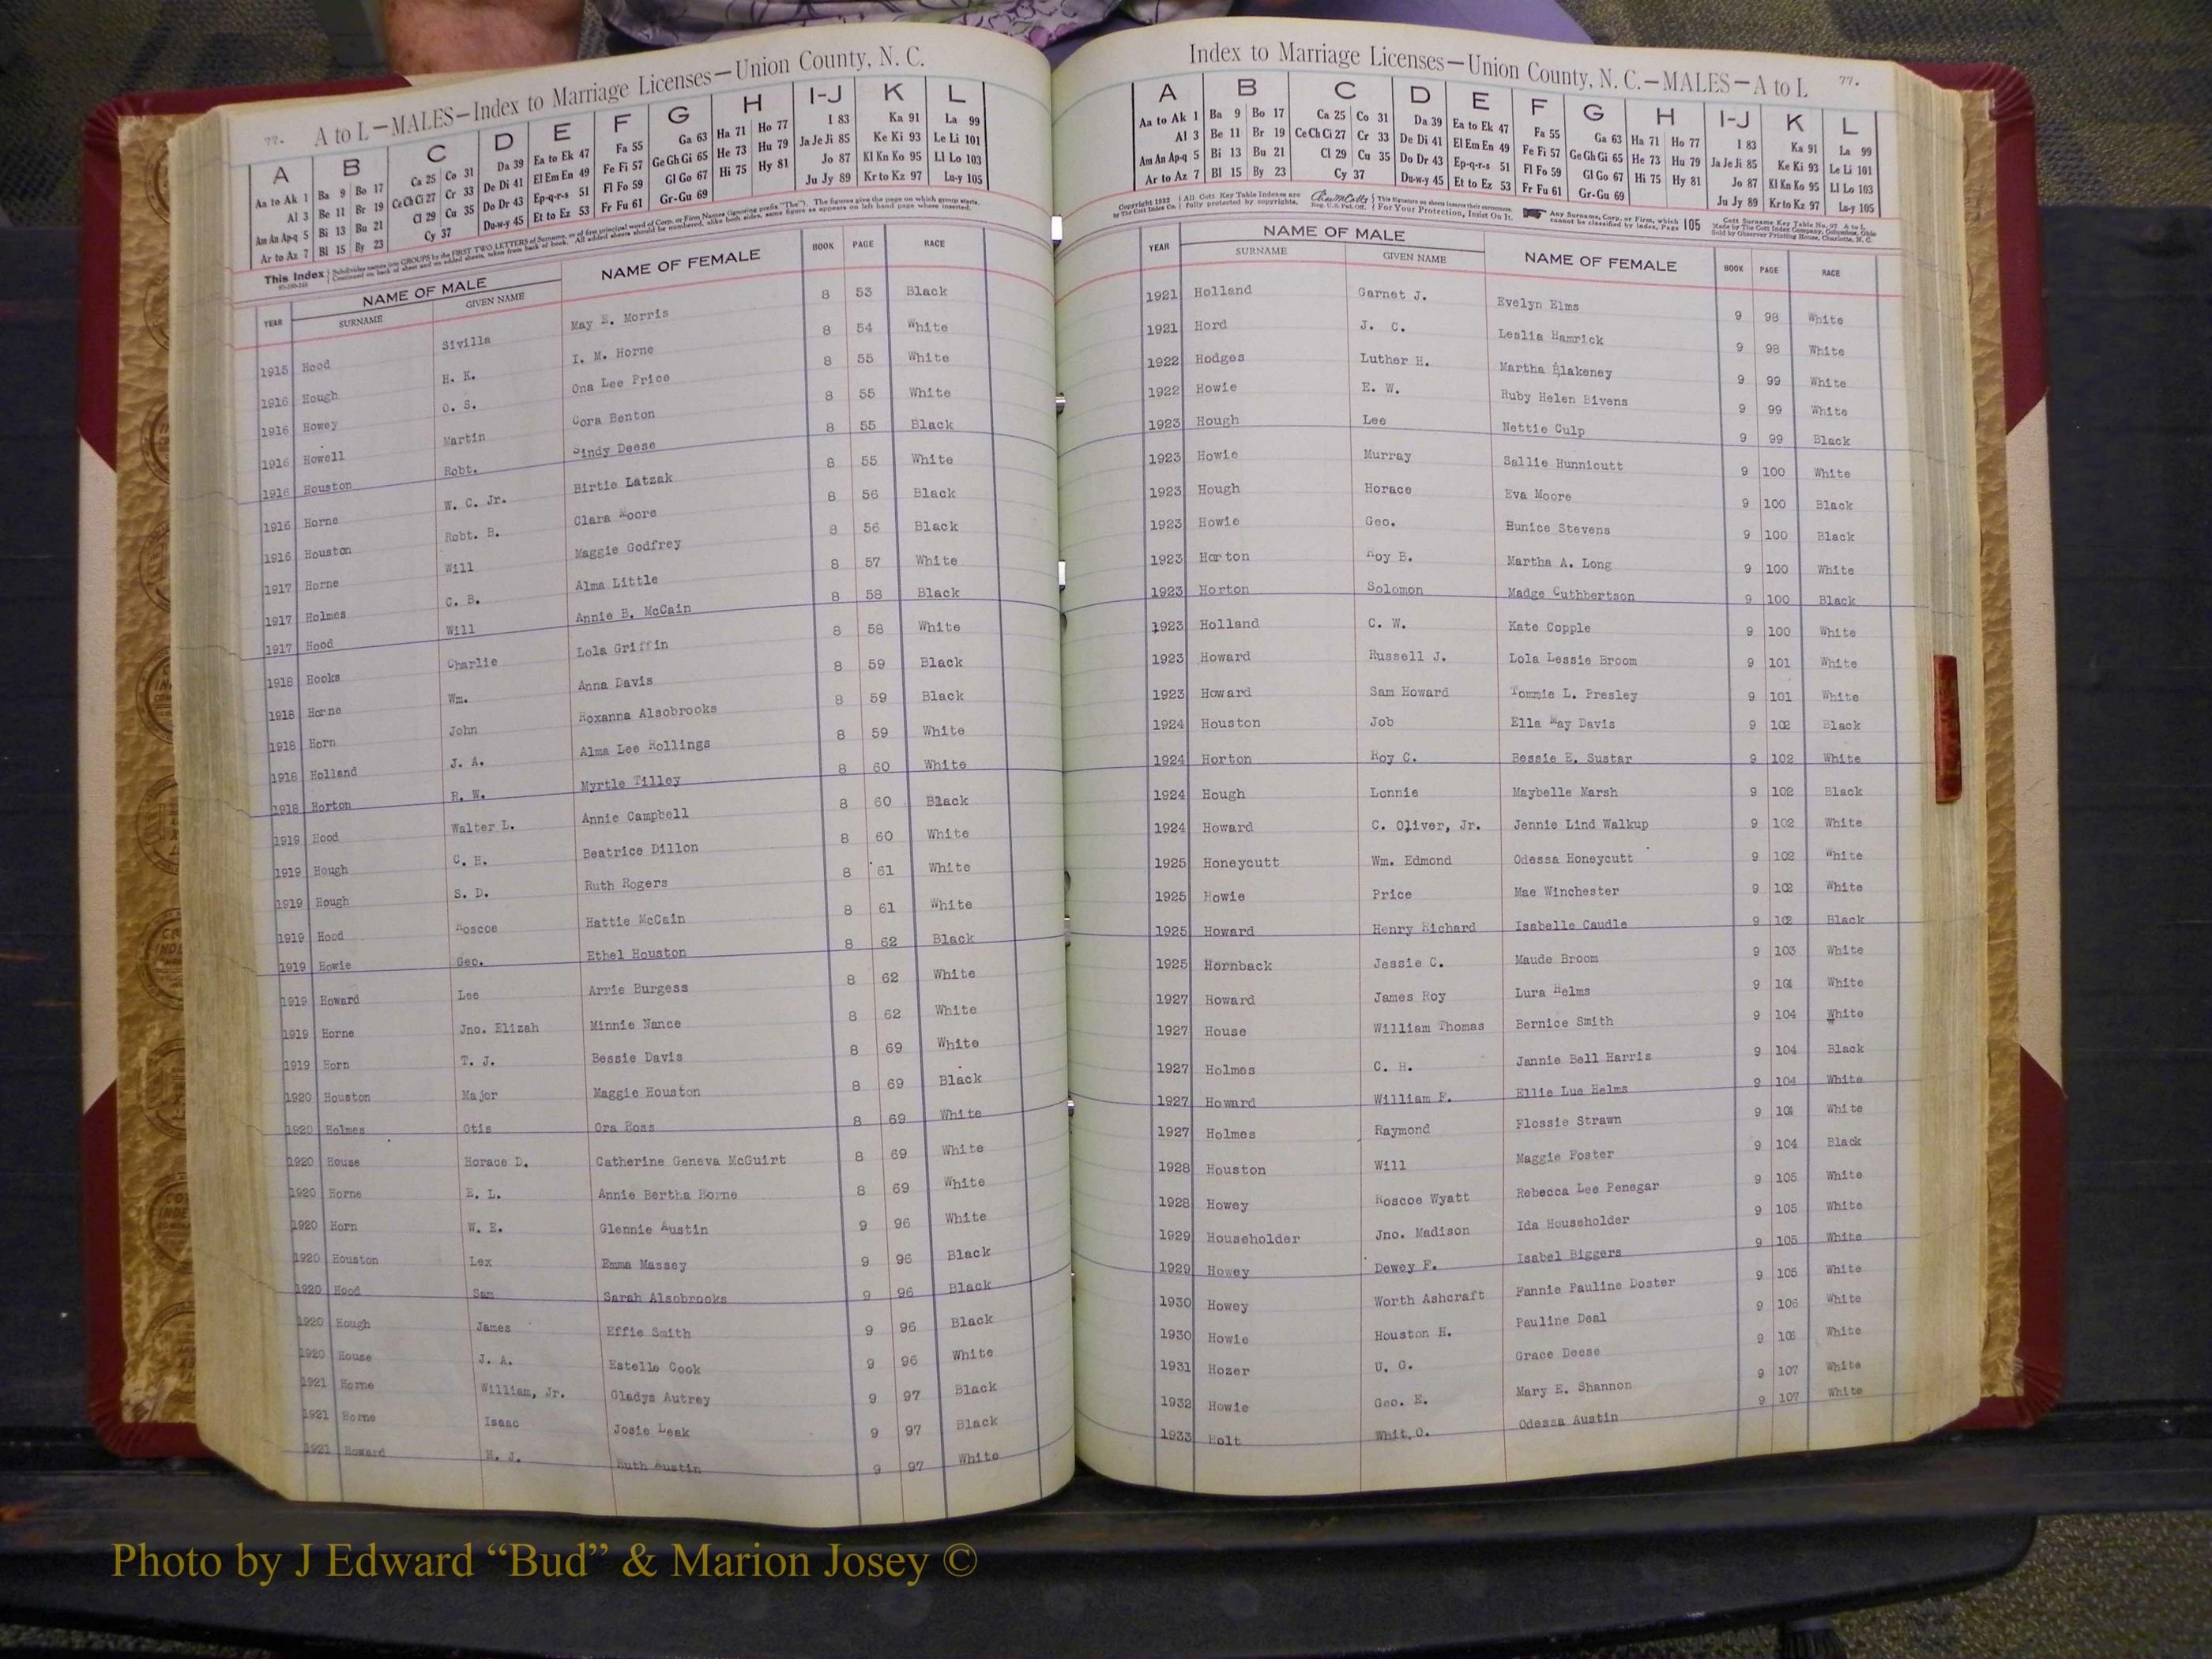 77. A to L—MALES—Index to Marriage Licenses—Union County, N. C.
A B C D E F G H I-J K L
Aa to Ak 1 Ba 9 Bo 17 Ca 25 Co 31 Da 39 Ea to Ek 47 Fa 55 Ga 63 Ha 71 Ho 77 I 83 Ka 91 La 99
Al 3 Be 11 Br 19 Ce Ch Ci 27 Cr 33 De Di 41 El Em En 49 Fe Fi 57 Ge Gh Gi 65 He 73 Hu 79 Ja Je Ji 85 Ke Ki 93 Le Li 101
Am An Ap-q 5 Bi 13 Bu 21 Cl 29 Cu 35 Do Dr 43 Ep-q-r-s 51 Fl Fo 59 Gl Go 67 Hi 75 Hy 81 Jo 87 Kl Kn Ko 95 Ll Lo 103
Ar to Az 7 Bl 15 By 23 Cy 37 Du-w-y 45 Et to Ez 53 Fr Fu 61 Gr-Gu 69 Ju Jy 89 Kr to Kz 97 Lu-y 105
This Index Subdivides names into GROUPS by the FIRST TWO LETTERS of Surname, or of first principal word of Corp. or Firm Names (ignoring prefix "The"). The figures give the page on which group starts.
Continued on back of sheet and on added sheets, taken from back of book. All added sheets should be numbered, alike both sides, same figure as appears on left hand page where inserted.
YEAR NAME OF MALE NAME OF FEMALE BOOK PAGE RACE
SURNAME GIVEN NAME
1915 Hood Sivilla May E. Morris 8 53 Black
1916 Hough H. K. I. M. Horne 8 54 White
1916 Howey O. S. Ona Lee Price 8 55 White
1916 Howell Martin Cora Benton 8 55 White
1916 Houston Robt. Sindy Deese 8 55 Black
1916 Horne W. C. Jr. Birtie Latzak 8 55 White
1916 Houston Robt. B. Clara Moore 8 56 Black
1917 Horne Will Maggie Godfrey 8 56 Black
1917 Holmes C. B. Alma Little 8 57 White
1917 Hood Will Annie B. McCain 8 58 Black
1918 Hooks Charlie Lola Griffin 8 58 White
1918 Horne Wm. Anna Davis 8 59 Black
1918 Horn John Roxanna Alsobrooks 8 59 Black
1918 Holland J. A. Alma Lee Hollings 8 59 White
1918 Horton R. W. Myrtle Tilley 8 60 White
1919 Hood Walter L. Annie Campbell 8 60 Black
1919 Hough C. H. Beatrice Dillon 8 60 White
1919 Hough S. D. Ruth Rogers 8 61 White
1919 Hood Roscoe Hattie McCain 8 61 White
1919 Howie Geo. Ethel Houston 8 62 Black
1919 Howard Lee Arrie Burgess 8 62 White
1919 Horne Jno. Elizah Minnie Nance 8 62 White
1919 Horn T. J. Bessie Davis 8 69 White
1920 Houston Major Maggie Houston 8 69 Black
1920 Holmes Otis Ora Ross 8 69 White
1920 House Horace D. Catherine Geneva McGuirt 8 69 White
1920 Horne E. L. Annie Bertha Horne 8 69 White
1920 Horn W. E. Glennie Austin 9 96 White
1920 Houston Lex Emma Massey 9 96 Black
1920 Hood Sam Sarah Alsobrooks 9 96 Black
1920 Hough James Effie Smith 9 96 Black
1920 House J. A. Estelle Cook 9 96 White
1921 Horne William, Jr. Gladys Autrey 9 97 Black
1921 Horne Isaac Josie Leak 9 97 Black
1921 Howard H. J. Ruth Austin 9 97 White
Index to Marriage Licenses—Union County, N. C.—MALES—A to L 77.
A B C D E F G H I-J K L
Aa to Ak 1 Ba 9 Bo 17 Ca 25 Co 31 Da 39 Ea to Ek 47 Fa 55 Ga 63 Ha 71 Ho 77 I 83 Ka 91 La 99
Al 3 Be 11 Br 19 Ce Ch Ci 27 Cr 33 De Di 41 El Em En 49 Fe Fi 57 Ge Gh Gi 65 He 73 Hu 79 Ja Je Ji 85 Ke Ki 93 Le Li 101
Am An Ap-q 5 Bi 13 Bu 21 Cl 29 Cu 35 Do Dr 43 Ep-q-r-s 51 Fl Fo 59 Gl Go 67 Hi 75 Hy 81 Jo 87 Kl Kn Ko 95 Ll Lo 103
Ar to Az 7 Bl 15 By 23 Cy 37 Du-w-y 45 Et to Ez 53 Fr Fu 61 Gr-Gu 69 Ju Jy 89 Kr to Kz 97 Lu-y 105
Copyright 1922 by The Cott Index Co. All Cott Key Table Indexes are fully protected by copyrights. Reg. U.S. Pat. Off. This Signature on sheets insures their correctness. For Your Protection, Insist On It. Any Surname, Corp. or Firm, which cannot be classified by Index, Page 105 Cott Surname Key Table No. 97 A to L Made by The Cott Index Company, Columbus, Ohio Sold by Observer Printing House, Charlotte, N. C.
YEAR NAME OF MALE NAME OF FEMALE BOOK PAGE RACE
SURNAME GIVEN NAME
1921 Holland Garnet J. Evelyn Elms 9 98 White
1921 Hord J. C. Leslia Hamrick 9 98 White
1922 Hodges Luther H. Martha Blakeney 9 99 White
1922 Howie E. W. Ruby Helen Bivens 9 99 White
1923 Hough Lee Nettie Culp 9 99 Black
1923 Howie Murray Sallie Hunnicutt 9 100 White
1923 Hough Horace Eva Moore 9 100 Black
1923 Howie Geo. Eunice Stevens 9 100 Black
1923 Horton Roy B. Martha A. Long 9 100 White
1923 Horton Solomon Madge Cuthbertson 9 100 Black
1923 Holland C. W. Kate Copple 9 100 White
1923 Howard Russell J. Lola Lessie Broom 9 101 White
1923 Howard Sam Howard Tommie L. Presley 9 101 White
1924 Houston Job Ella May Davis 9 102 Black
1924 Horton Roy C. Bessie E. Sustar 9 102 White
1924 Hough Lonnie Maybelle Marsh 9 102 Black
1924 Howard C. Oliver, Jr. Jennie Lind Walkup 9 102 White
1925 Honeycutt Wm. Edmond Odessa Honeycutt 9 102 White
1925 Howie Price Mae Winchester 9 102 White
1925 Howard Henry Richard Isabelle Caudle 9 102 Black
1925 Hornback Jessie C. Maude Broom 9 103 White
1927 Howard James Roy Lura Helms 9 104 White
1927 House William Thomas Bernice Smith 9 104 White
1927 Holmes C. H. Jannie Bell Harris 9 104 Black
1927 Howard William F. Ellie Lue Helms 9 104 White
1927 Holmes Raymond Flossie Strawn 9 104 White
1928 Houston Will Maggie Foster 9 104 Black
1928 Howey Roscoe Wyatt Rebecca Lee Penegar 9 105 White
1929 Householder Jno. Madison Ida Householder 9 105 White
1929 Howey Dewey F. Isabel Biggers 9 105 White
1930 Howey Worth Ashcraft Fannie Pauline Doster 9 105 White
1930 Howie Houston H. Pauline Deal 9 106 White
1931 Hozer U. G. Grace Deese 9 106 White
1932 Howie Geo. E. Mary E. Shannon 9 107 White
1933 Holt Whit. O. Odessa Austin 9 107 White
Photo by J Edward “Bud” & Marion Josey ©